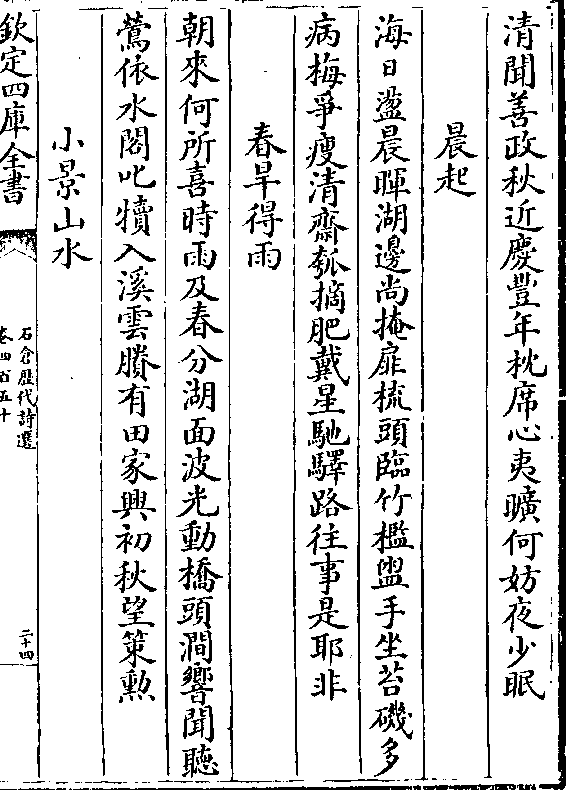 清聞善政秋近慶豐年枕席心夷曠何妨夜少眠
晨起
海日盪晨暉湖邊尚掩扉梳頭臨竹檻盥手坐苔磯多
病梅爭瘦清齋瓠摘肥戴星馳驛路往事是耶非
春旱得雨
朝來何所喜時雨及春分湖面波光動橋頭澗響聞聽
鶯依水閣叱犢入溪雲賸有田家興初秋望策勲
小景山水
欽定四庫全書
石倉歴代詩選
卷四百五十
二十四